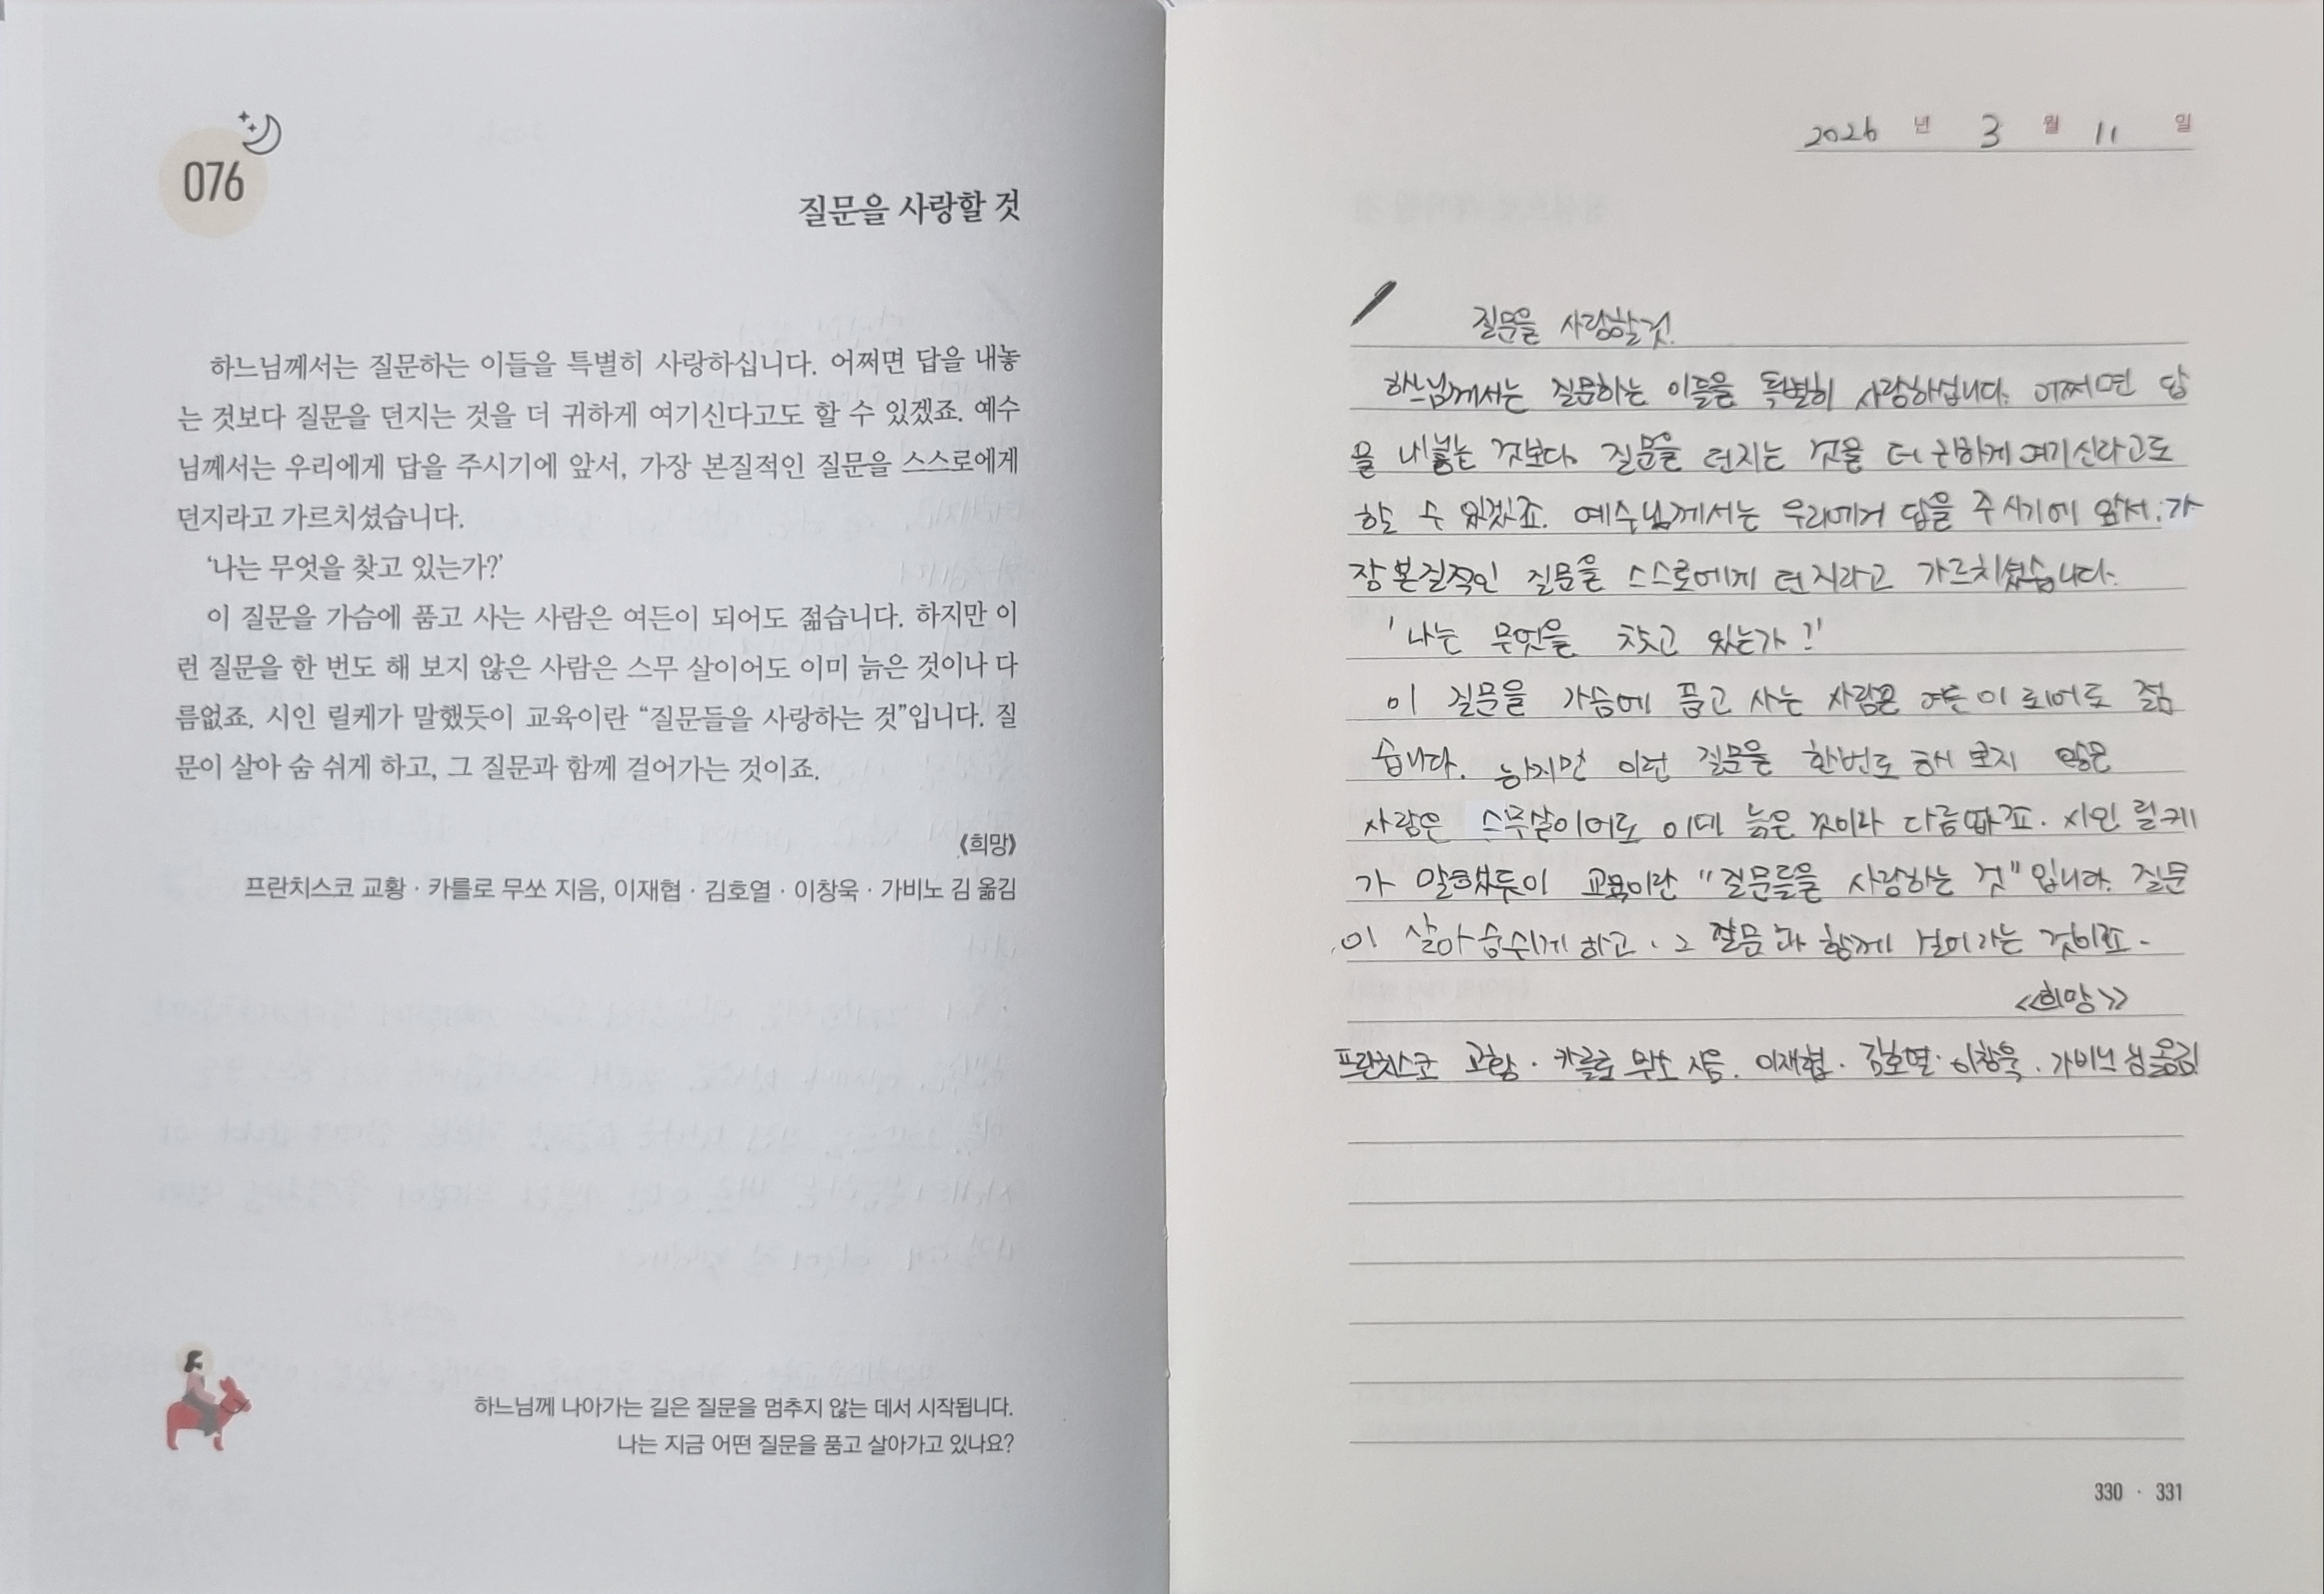 076
질문을 사랑할 것
하느님께서는 질문하는 이들을 특별히 사랑하십니다. 어쩌면 답을 내놓
는 것보다 질문을 던지는 것을 더 귀하게 여기신다고도 할 수 있겠죠. 예수
님께서는 우리에게 답을 주시기에 앞서, 가장 본질적인 질문을 스스로에게
던지라고 가르치셨습니다.
'나는 무엇을 찾고 있는가?'
이 질문을 가슴에 품고 사는 사람은 여든이 되어도 젊습니다. 하지만 이
런 질문을 한 번도 해 보지 않은 사람은 스무 살이어도 이미 늙은 것이나 다
름없죠. 시인 릴케가 말했듯이 교육이란 “질문들을 사랑하는 것”입니다. 질
문이 살아 숨 쉬게 하고, 그 질문과 함께 걸어가는 것이죠.
《희망》
프란치스코 교황 · 카를로 무쏘 지음, 이재협 · 김호열 · 이창욱 · 가비노 김 옮김
하느님께 나아가는 길은 질문을 멈추지 않는 데서 시작됩니다.
나는 지금 어떤 질문을 품고 살아가고 있나요?
2026 년 3 월 11 일
질문을 사랑할것.
하느님께서는 질문하는 이들을 특별히 사랑하십니다. 어쩌면 답
을 내놓는 것보다. 질문을 던지는 것을 더 귀하게 여기신다고도
할 수 있겠죠. 예수님께서는 우리에게 답을 주시기에 앞서, 가
장 본질적인 질문을 스스로에게 던지라고 가르치셨습니다.
'나는 무엇을 찾고 있는가?'
이 질문을 가슴에 품고 사는 사람은 여든이 되어도 젊
습니다. 하지만 이런 질문을 한번도 해 보지 않은
사람은 스무살이어도 늙은 것이나 시인 릴케
가 말했듯이 교육이란 "질문들을 사랑하는 것"입니다. 질문
이 살아 숨쉬게 하고, 그 질문과 함께 걸어가는 것이죠.
<<희망>>
프란치스코 교황 · 카를로 무쏘 지음. 이재협 · 김호열 · 이창욱 · 가비노 옮김
330 · 331